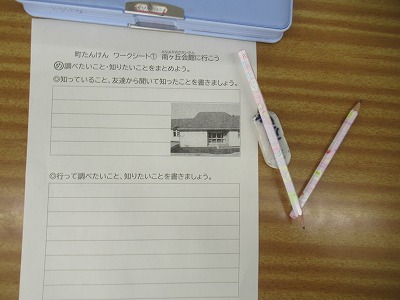 町たんけん ワークシート① 南ヶ丘会館に行こう
め調べたいこと・知りたいことをまとめよう。
◎知っていること、友達から聞いて知ったことを書きましょう。
◎行って調べたいこと、知りたいことを書きましょう。